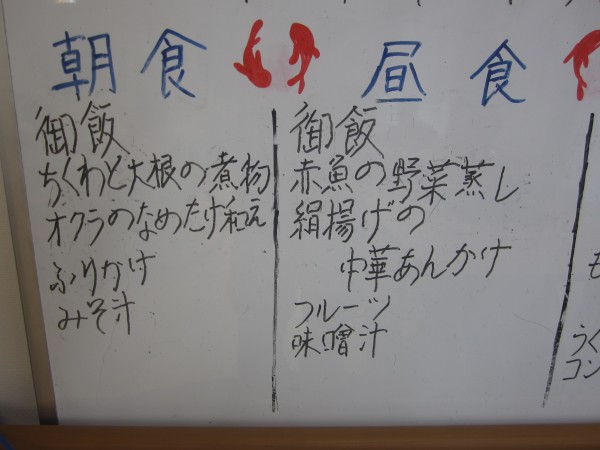 朝食
御飯
ちくわと大根の煮物
オクラのなめたけ和え
ふりかけ
みそ汁
昼食
御飯
赤魚の野菜蒸し
絹揚げの
中華あんかけ
フルーツ
味噌汁
も
うく
コン